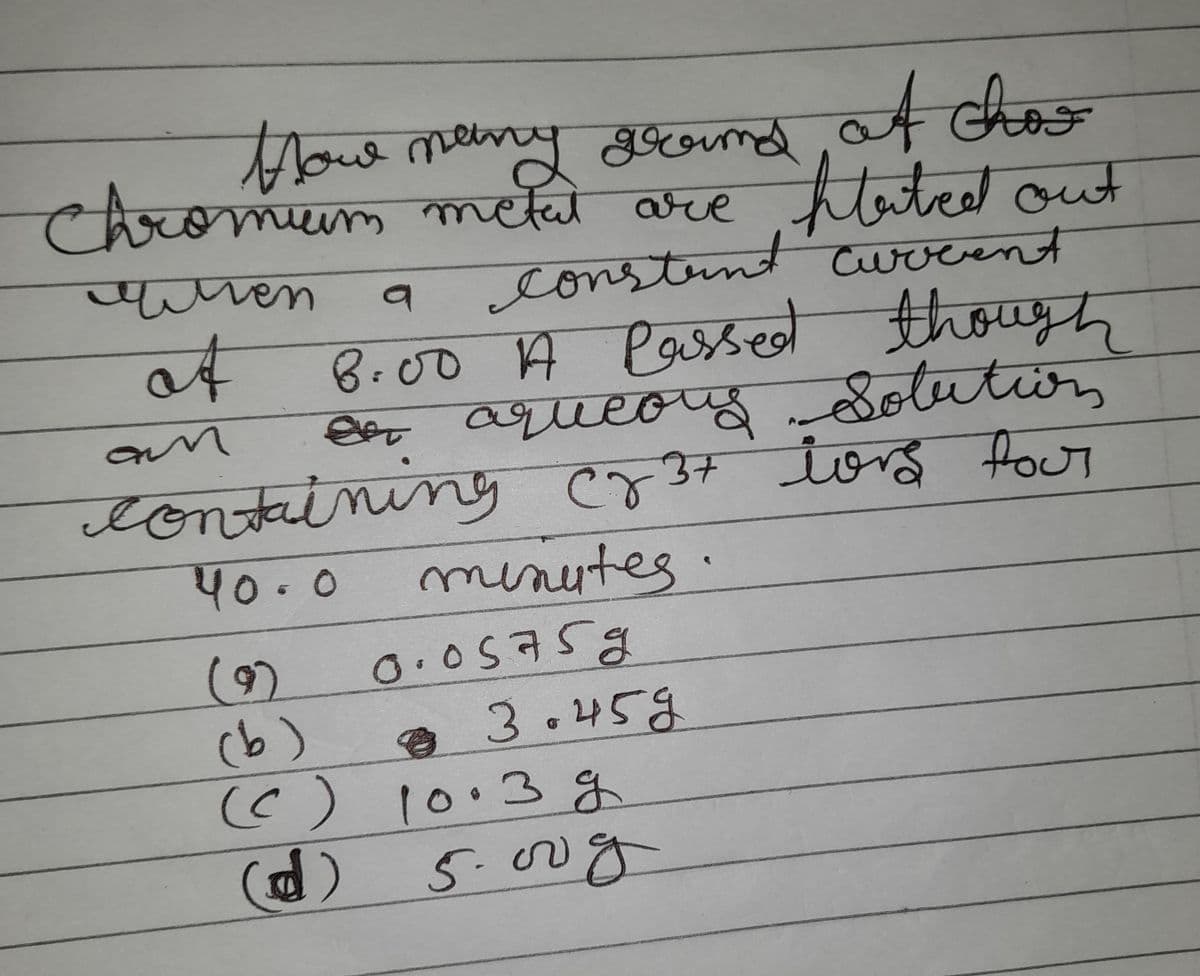 How many grams of chor
Chromium metal are plated out
when a constant current
of 8.00 A Passed though
an aqueous Solution
containing Cr3+ ions for
40.0 minutes.
(a) 0.0575g
(b) 3.45g
(c) 10.3 g
(d) 5.00g